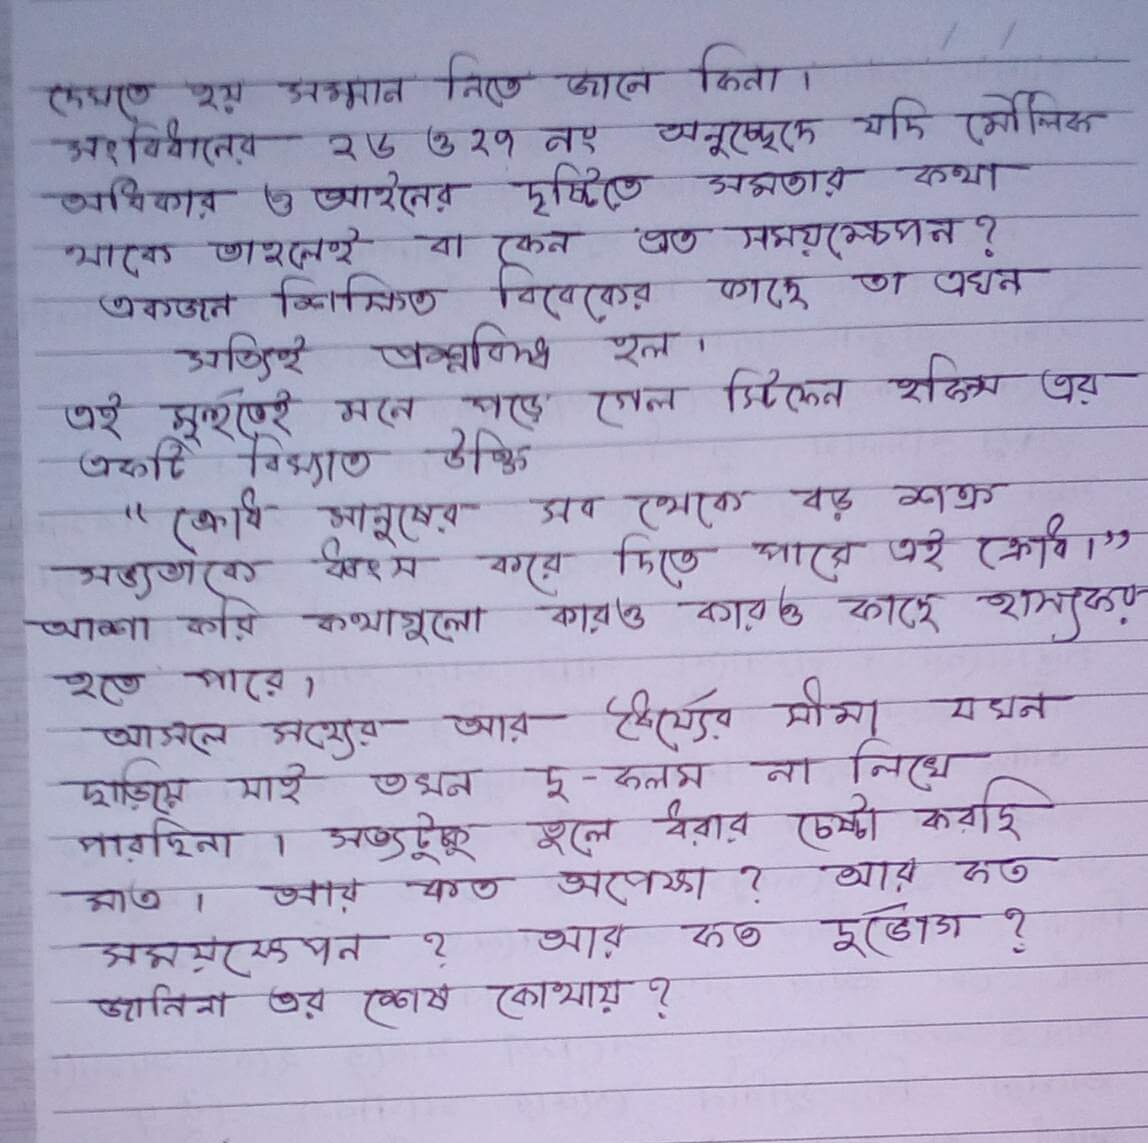 দেখতে হয় সম্মান নিতে জানে কিনা।
সংবিধানের ২৬ ও ২৭ নং অনুচ্ছেদে যদি মৌলিক
অধিকার ও আইনের দৃষ্টিতে সমতার কথা
থাকে তাহলেই বা কেন এত সময়ক্ষেপন?
একজন শিক্ষিত বিবেকের কাছে তা এখন
সত্যিই প্রশ্নবিদ্ধ হল।
এই মূহুর্তেই মনে পড়ে গেল স্টিফেন হকিন্স এর
একটি বিখ্যাত উক্তি
"ক্রোধ মানুষের সব থেকে বড় শত্রু
সভ্যতাকে ধ্বংস করে দিতে পারে এই ক্রোধ।"
আশা করি কথাগুলো কারও কারও কাছে হাস্যকর
হতে পারে।
আসলে সহ্যের আর ধৈর্য্যের সীমা যখন
ছাড়িয়ে যাই তখন দু-কলম না লিখে
পারছিনা। সত্যটুকু তুলে ধরার চেষ্টা করছি
মাত্র। আর কত অপেক্ষা? আর কত
সময়ক্ষেপন? আর কত দুর্ভোগ?
জানিনা এর শেষ কোথায়?